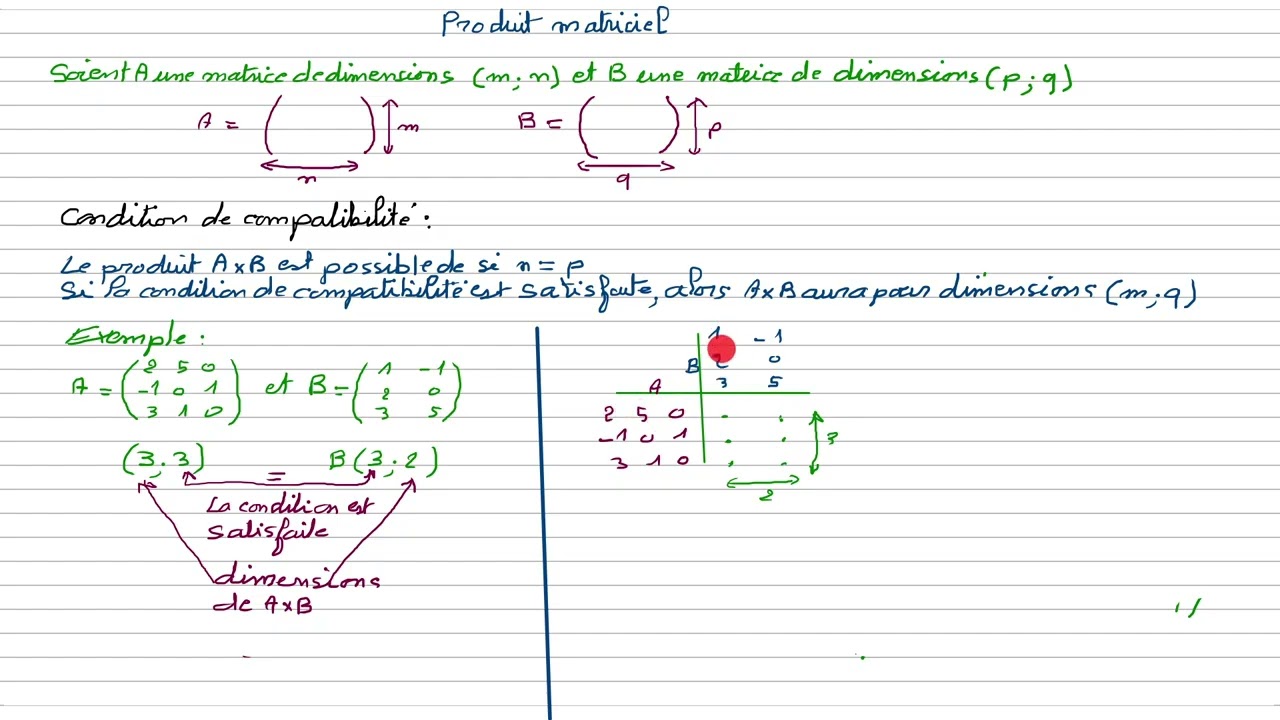 Produit matriciel
Soient A une matrice de dimensions (m; n) et B une matrice de dimensions (p; q)
A = ( ) m B = ( ) p
n q
Condition de compatibilité :
Le produit A×B est possible de si n = p
Si la condition de compatibilité est satisfaite, alors A×B aura pour dimensions (m; q)
Exemple :
A = ( 2 5 0
-1 0 1
3 1 0 ) et B = ( 1 -1
2 0
3 5 )
(3; 3) = B(3; 2)
La condition est
satisfaite
dimensions
de A×B
1 -1
B 2 0
A 3 5
2 5 0 . .
-1 0 1 . . 3
3 1 0 . .
2